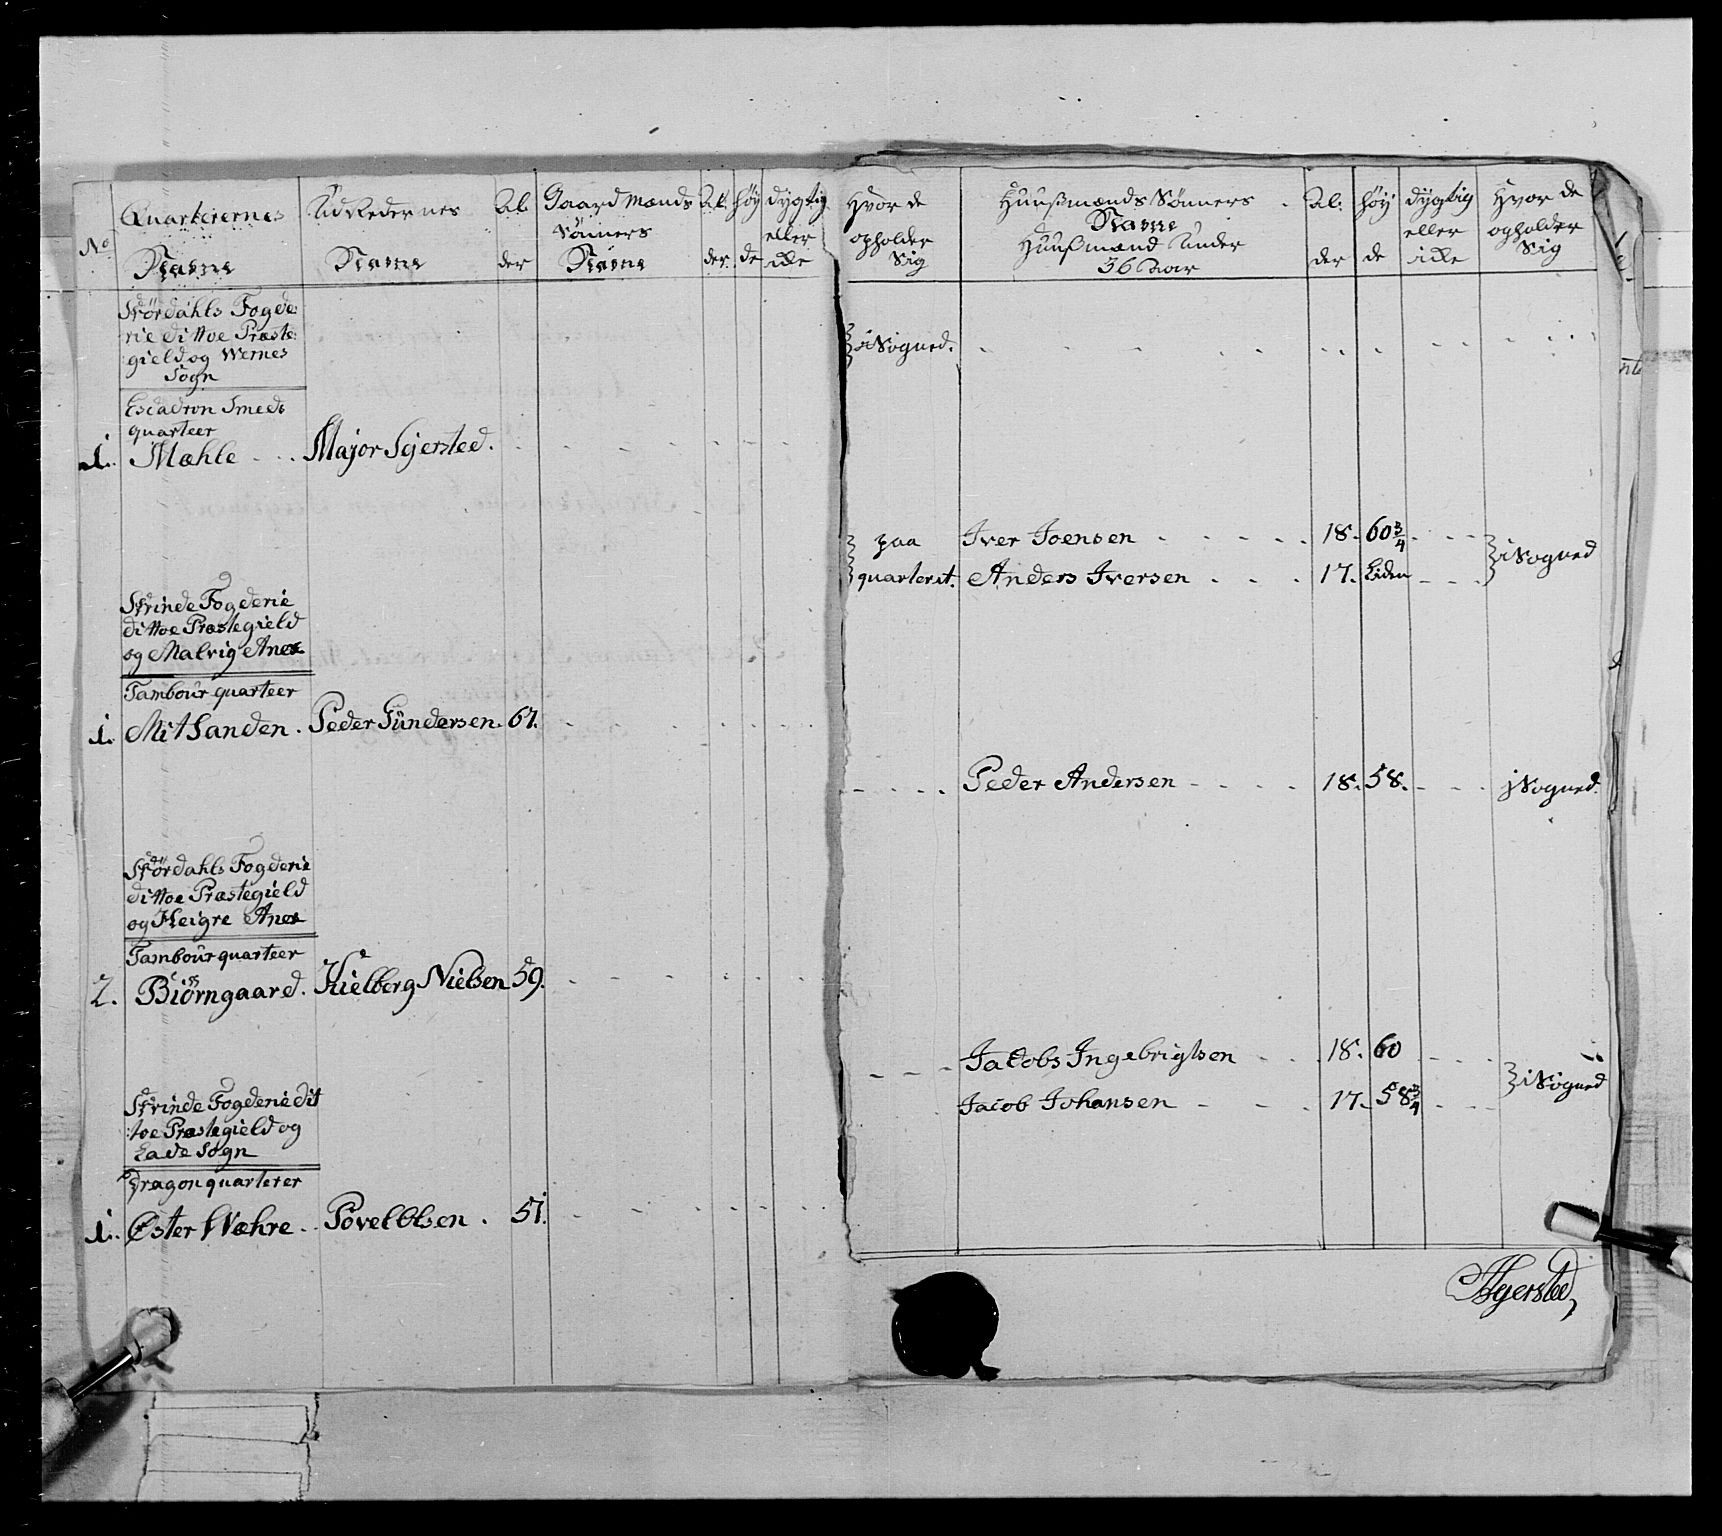 No
Quarteernes
Nafne
Udredernes
Nafne
Al
der
Gaardmænds
Sönners
Nafne
Al
der
höy
de
dygtig
eller
icke
Hvor de
opholder
Sig
Huusmænds Sönners
Nafne
Huusmænd Under
36 Aar
Al:
der
höy
de
dygtig
eller
icke
Hvor de
opholder
Sig
Stördahls Fogde:
rie dittoe Præste:
gield og Wernes
Sogn
i Sogned.
Escadron Smeds
quarteer
1. Mæhle Major Sejersted.
paa
quarteret.
Iver Joensen 18. 60 3/4
Anders Iversen 17. Liden
i Sogned
Strinde Fogderie
dittoe Præstegield
og Malvig Anex
Tambour quarteer
1. Mitsanden. Peder Gundersen. 67.
Peder Andersen 18. 58. i Sogned.
Stördahls Fogderie
dittoe Præstegield
og Heigre Anex
Tambour quarteer
2. Biörngaard. Kielberg Nielsen 59.
Jacobs Ingebrigtsen 18. 60
Jacob Johansen 17. 58 3/4
i Sogned
Strinde Fogderie dit
toe Præstegield og
Lade Sogn
Dragon quarteer
1. Øster Wæhre Povel Olsen. 51.